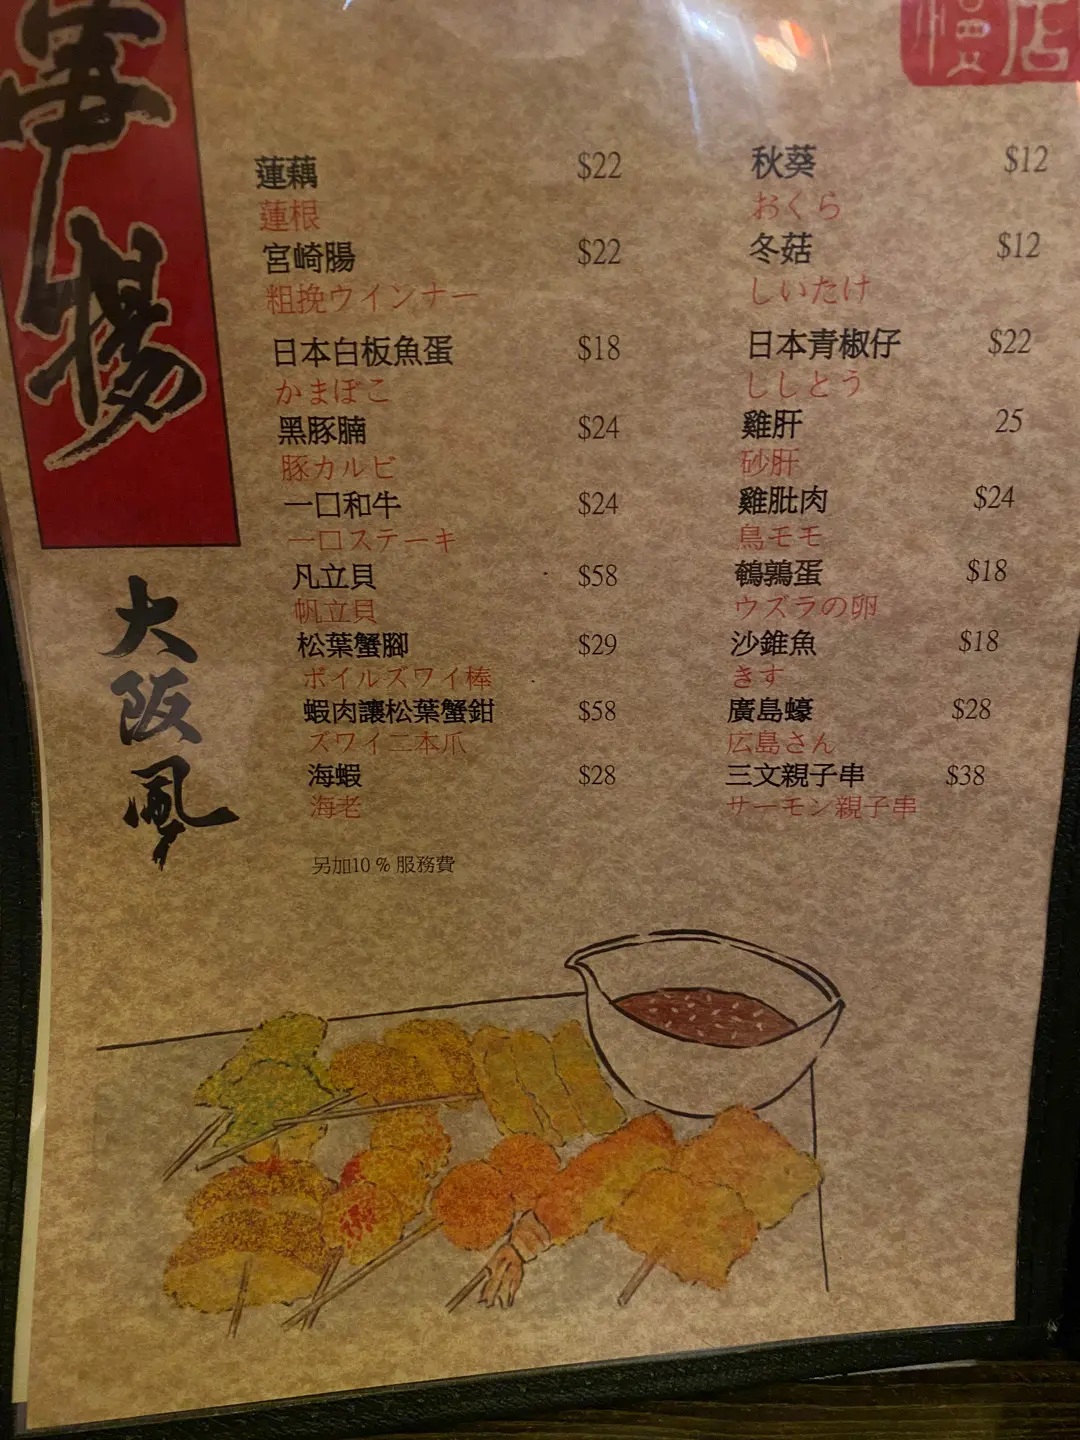 串揚
慢店
大阪風
蓮藕 $22
蓮根
宮崎腸 $22
粗挽ウインナー
日本白板魚蛋 $18
かまぼこ
黑豚腩 $24
豚カルビ
一口和牛 $24
一口ステーキ
凡立貝 $58
帆立貝
松葉蟹腳 $29
ボイルズワイ棒
蝦肉讓松葉蟹鉗 $58
ズワイ二本爪
海蝦 $28
海老
另加10 % 服務費
秋葵 $12
おくら
冬菇 $12
しいたけ
日本青椒仔 $22
ししとう
雞肝 25
砂肝
雞肶肉 $24
鳥モモ
鵪鶉蛋 $18
ウズラの卵
沙錐魚 $18
きす
廣島蠔 $28
広島さん
三文親子串 $38
サーモン親子串